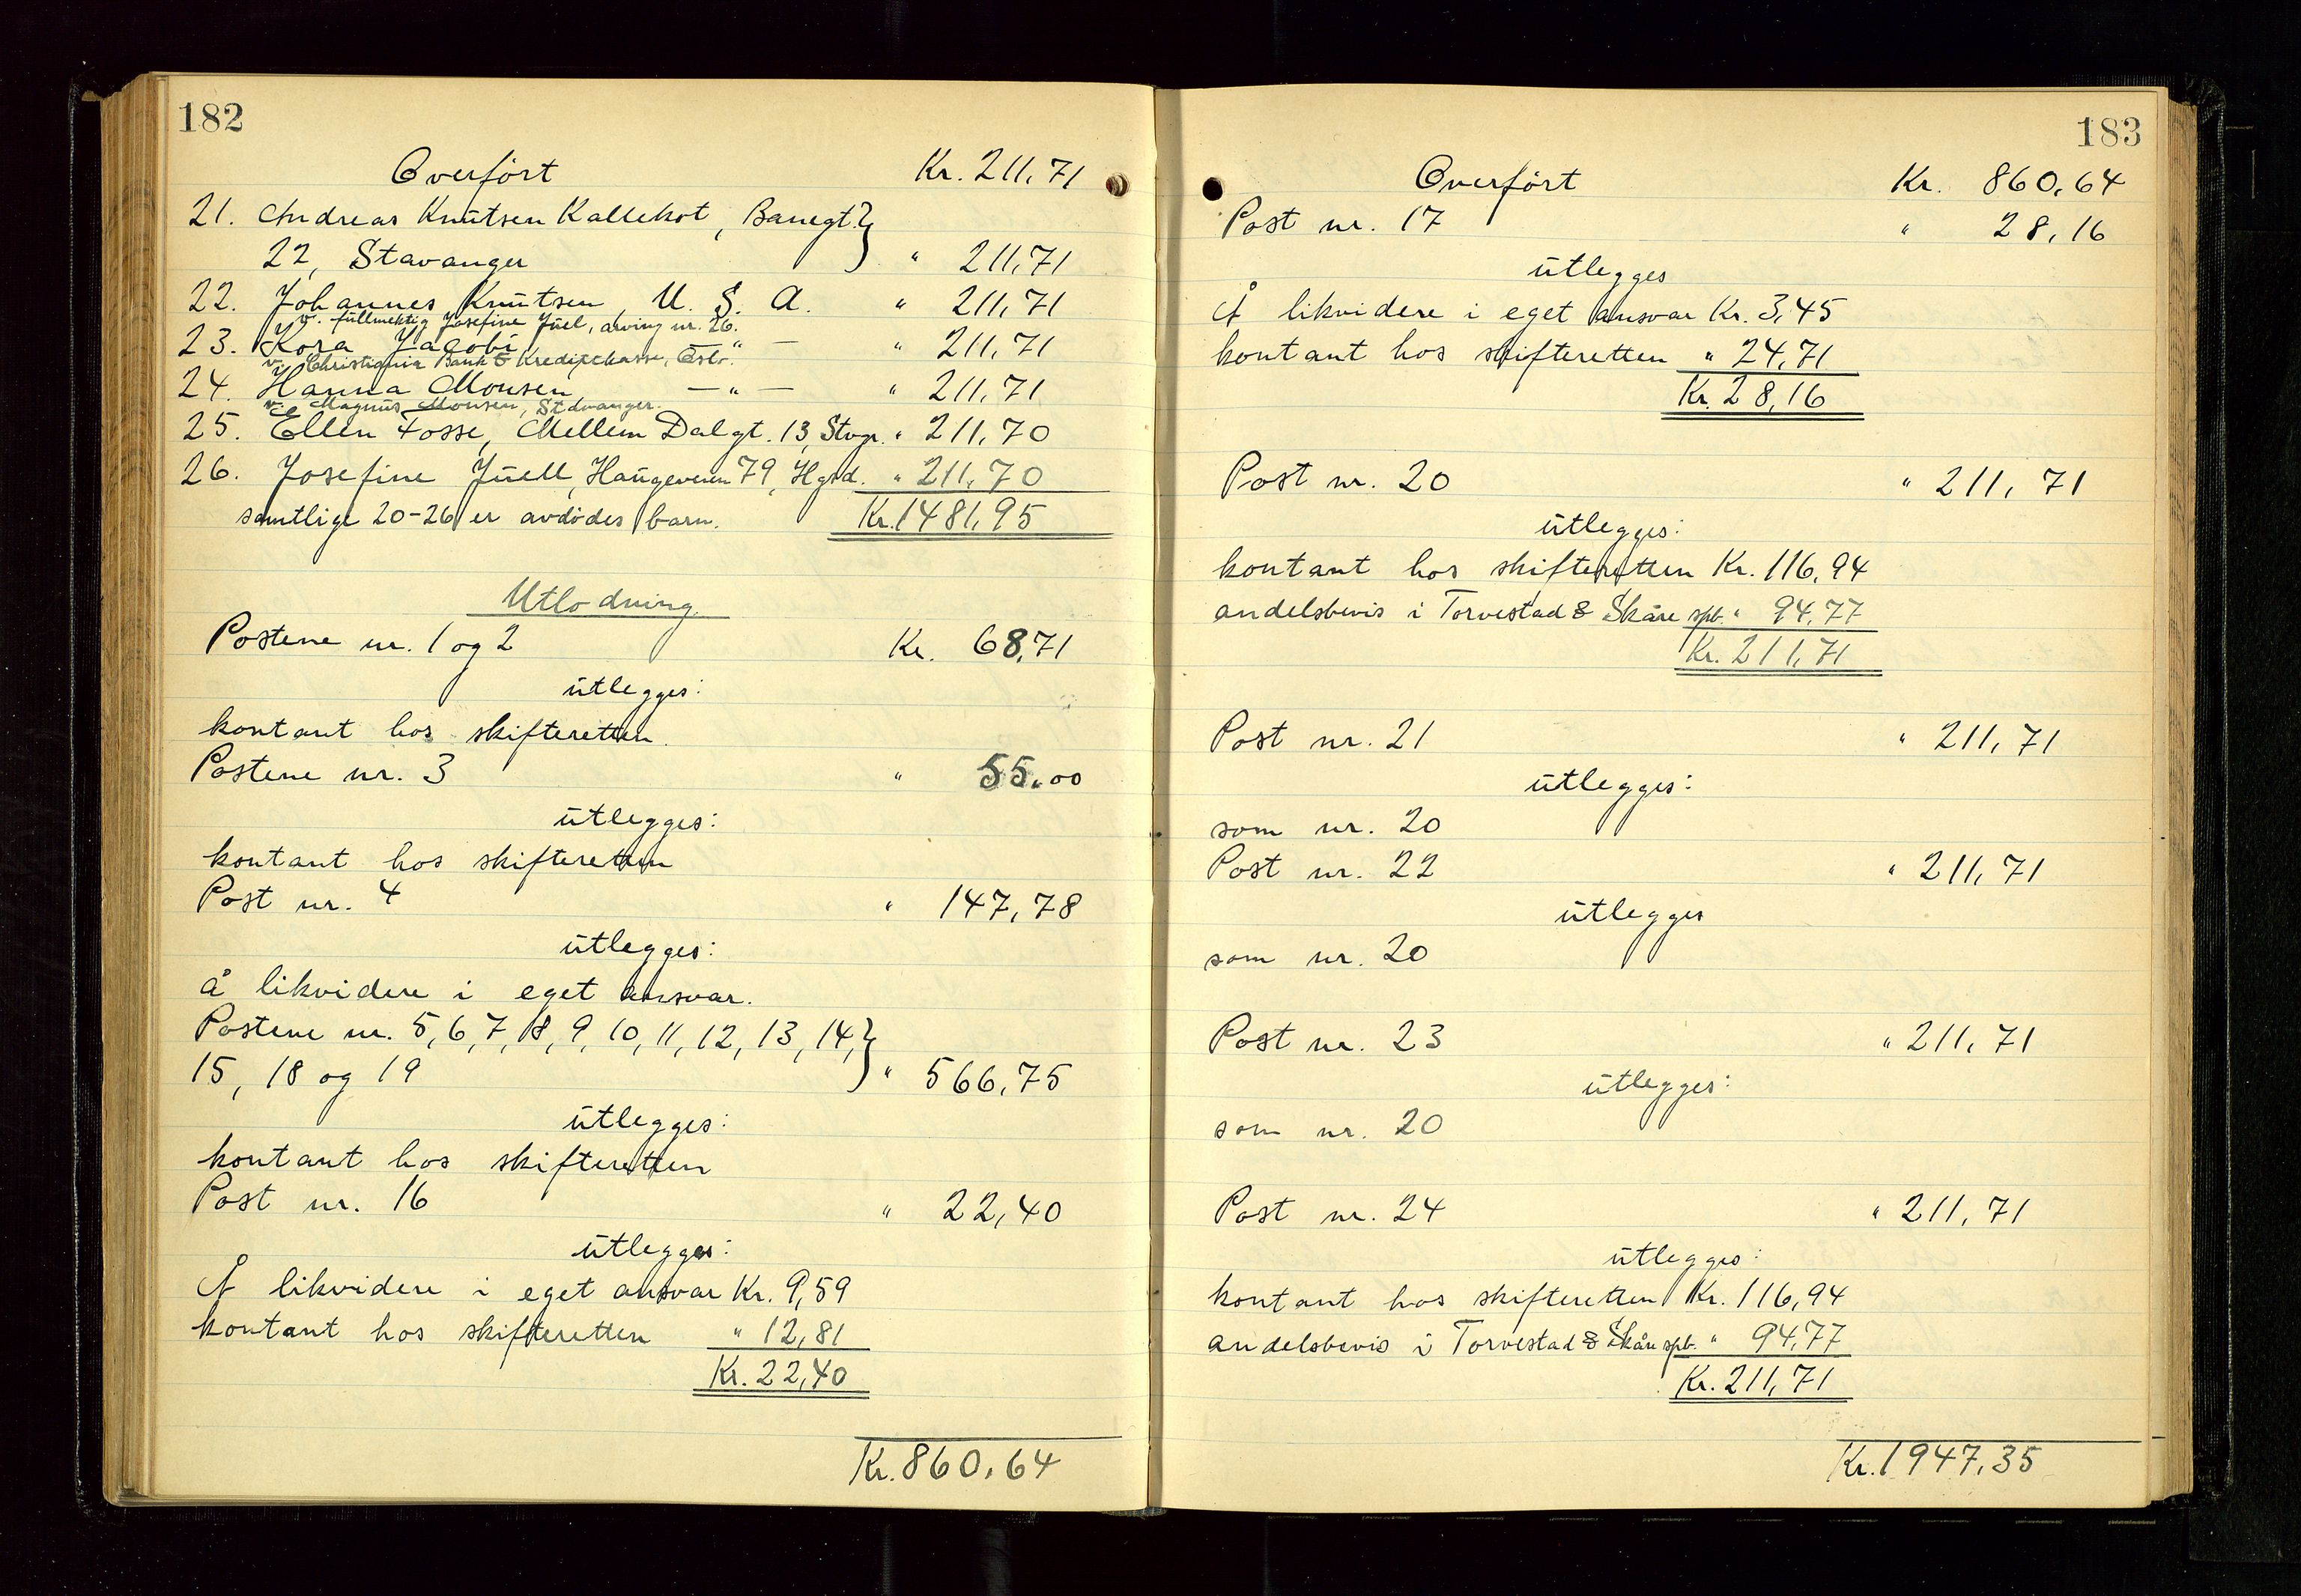 182
Overført Kr. 211,71
21. Andreas Knutsen Kallekot, Banegt. }
22, Stavanger " 211,71
22. Johannes Knutsen, U. S. A. " 211,71
v. fullmektig Josefine Juel, arving nr. 26.
23. Kora Jacobi — " — " 211,71
v. Christiania Bank & Kreditkasse, Oslo.
24. Hanna Monsen — " — " 211,71
v. Magnus Monsen, Stavanger.
25. Ellen Fosse, Mellem Dalgt. 13, Stvgr. " 211,70
26. Josefine Juell, Haugeveien 79, Hgsd. " 211,70
samtlige 20-26 er avdødes barn. Kr. 1481,95
Utlodning.
Postene nr. 1 og 2 Kr. 68,71
utlegges:
kontant hos skifteretten.
Postene nr. 3 " 55,00
utlegges:
kontant hos skifteretten
Post nr. 4 " 147,78
utlegges:
å likvidere i eget ansvar.
Postene nr. 5, 6, 7, 8, 9, 10, 11, 12, 13, 14, }
15, 18 og 19 " 566,75
utlegges:
kontant hos skifteretten
Post nr. 16 " 22,40
utlegges:
Å likvidere i eget ansvar Kr. 9,59
kontant hos skifteretten " 12,81
Kr. 22,40
Kr. 860,64
183
Overført Kr. 860,64
Post nr. 17 " 28,16
utlegges
Å likvidere i eget ansvar Kr. 3,45
kontant hos skifteretten " 24,71
Kr. 28,16
Post nr. 20 " 211,71
utlegges:
kontant hos skifteretten Kr. 116,94
andelsbevis i Torvestad & Skåre spb. " 94,77
Kr. 211,71
Post nr. 21 " 211,71
utlegges:
som nr. 20
Post nr. 22 " 211,71
utlegges
som nr. 20
Post nr. 23 " 211,71
utlegges:
som nr. 20
Post nr. 24 " 211,71
utlegges:
kontant hos skifteretten Kr. 116,94
andelsbevis i Torvestad & Skåre spb. " 94,77
Kr. 211,71
Kr. 1947,35